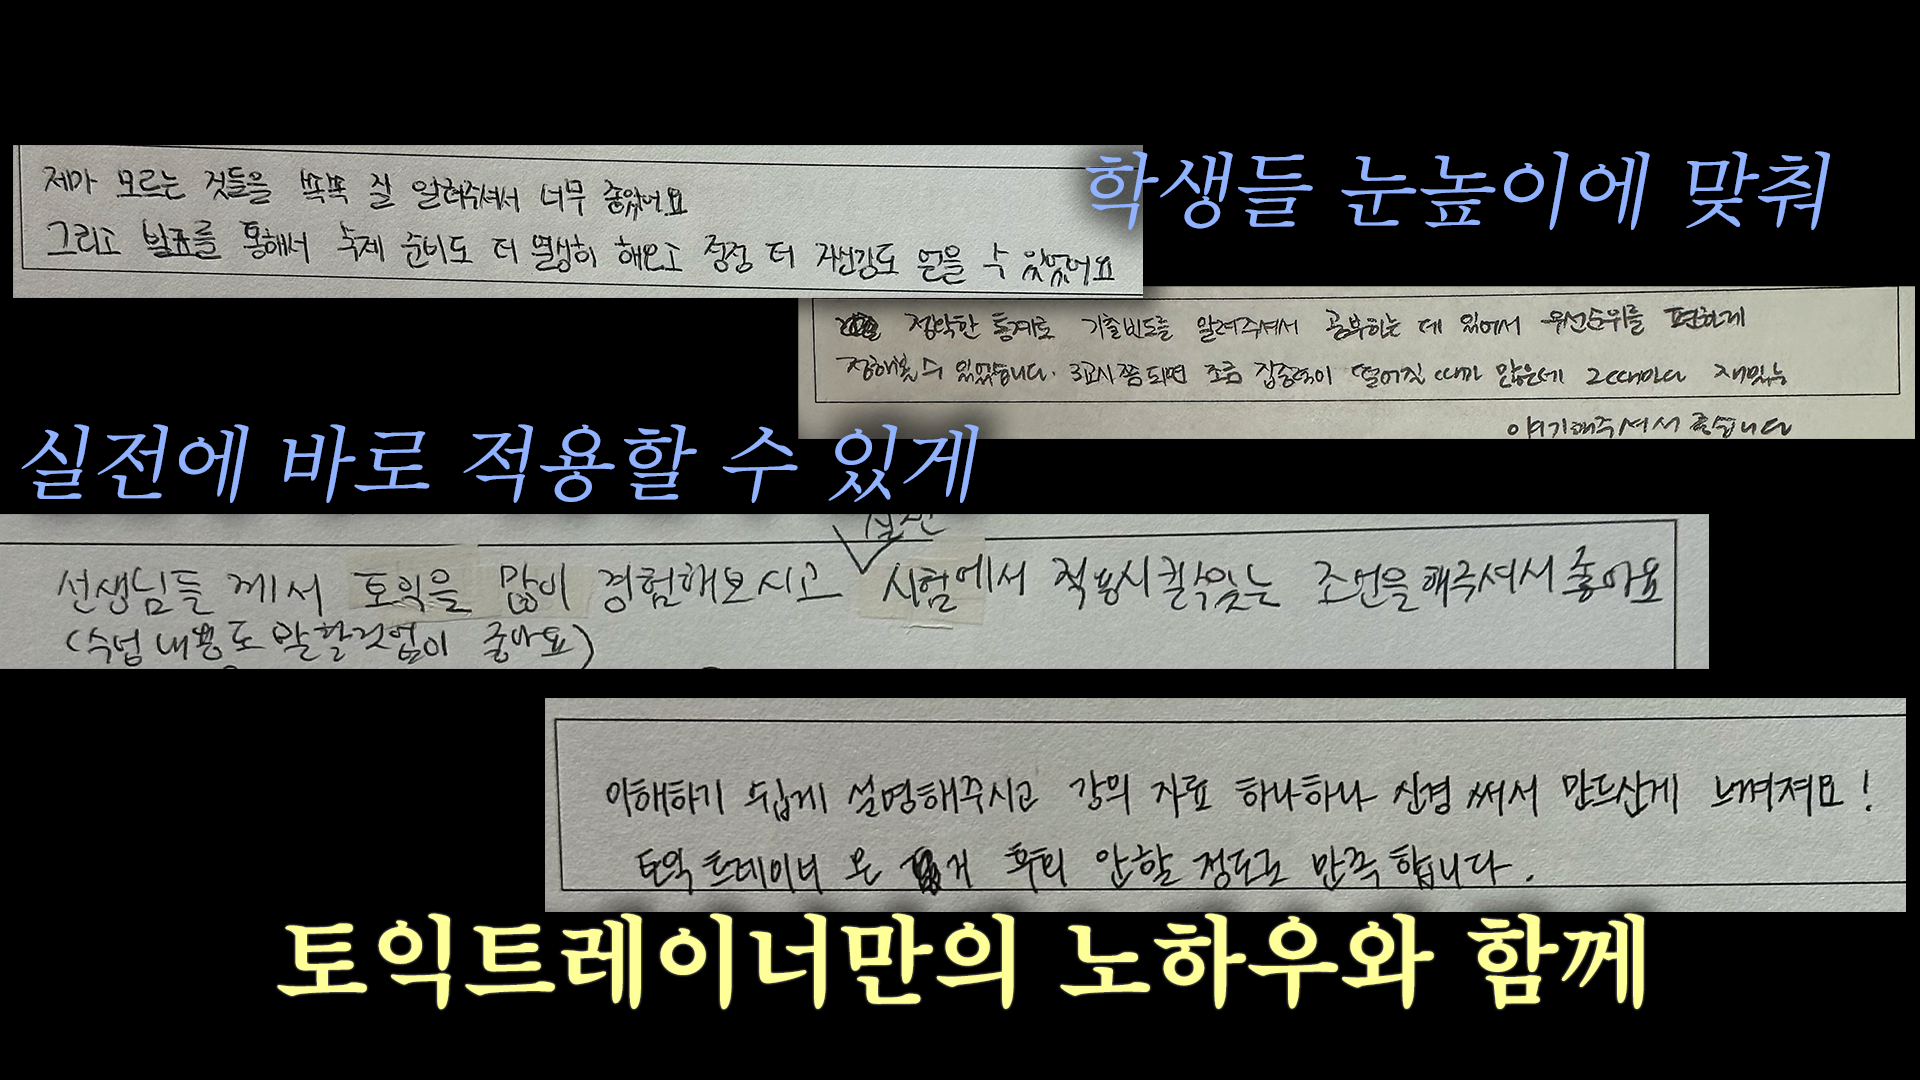 학생들 눈높이에 맞춰
제가 모르는 것들을 쏙쏙 잘 알려주셔서 너무 좋았어요
그리고 발표를 통해서 숙제 준비도 더 열심히 해오고 점점 더 자신감도 얻을 수 있었어요
정확한 통계로 기출빈도를 알려주셔서 공부하는 데 있어서 우선순위를 편하게
정해볼 수 있었습니다. 3교시쯤 되면 조금 집중력이 떨어질 때가 많은데 그때마다 재밌는
이야기해주셔서 좋습니다
실전에 바로 적용할 수 있게
실전
선생님들 께서 토익을 많이 경험해보시고 시험에서 적용시킬수있는 조언을해주셔서좋아요
(수업 내용도 말할것없이 좋아요)
이해하기 쉽게 설명해주시고 강의 자료 하나하나 신경 써서 만드신게 느껴져요!
토익 트레이너 온 게 후회 안할 정도로 만족합니다.
토익트레이너만의 노하우와 함께